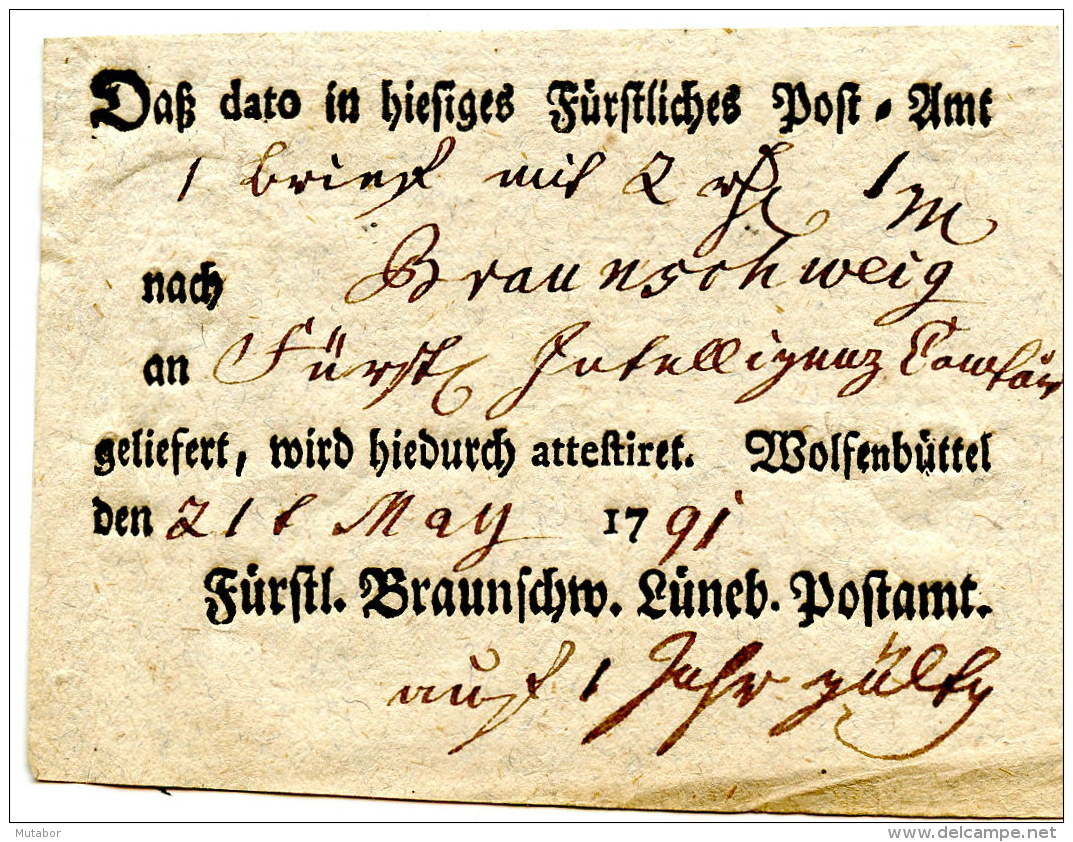 Daß dato in hiesiges Fürstliches Post-Amt
1 Brief mit 2 rthl 1 m
nach Braunschweig
an Fürstl Intelligenz Comtoir
geliefert, wird hiedurch attestiret. Wolfenbüttel
den 21t May 1791
Fürstl. Braunschw. Lüneb. Postamt.
auf 1 Jahr gültig
Mutabor
www.delcampe.net